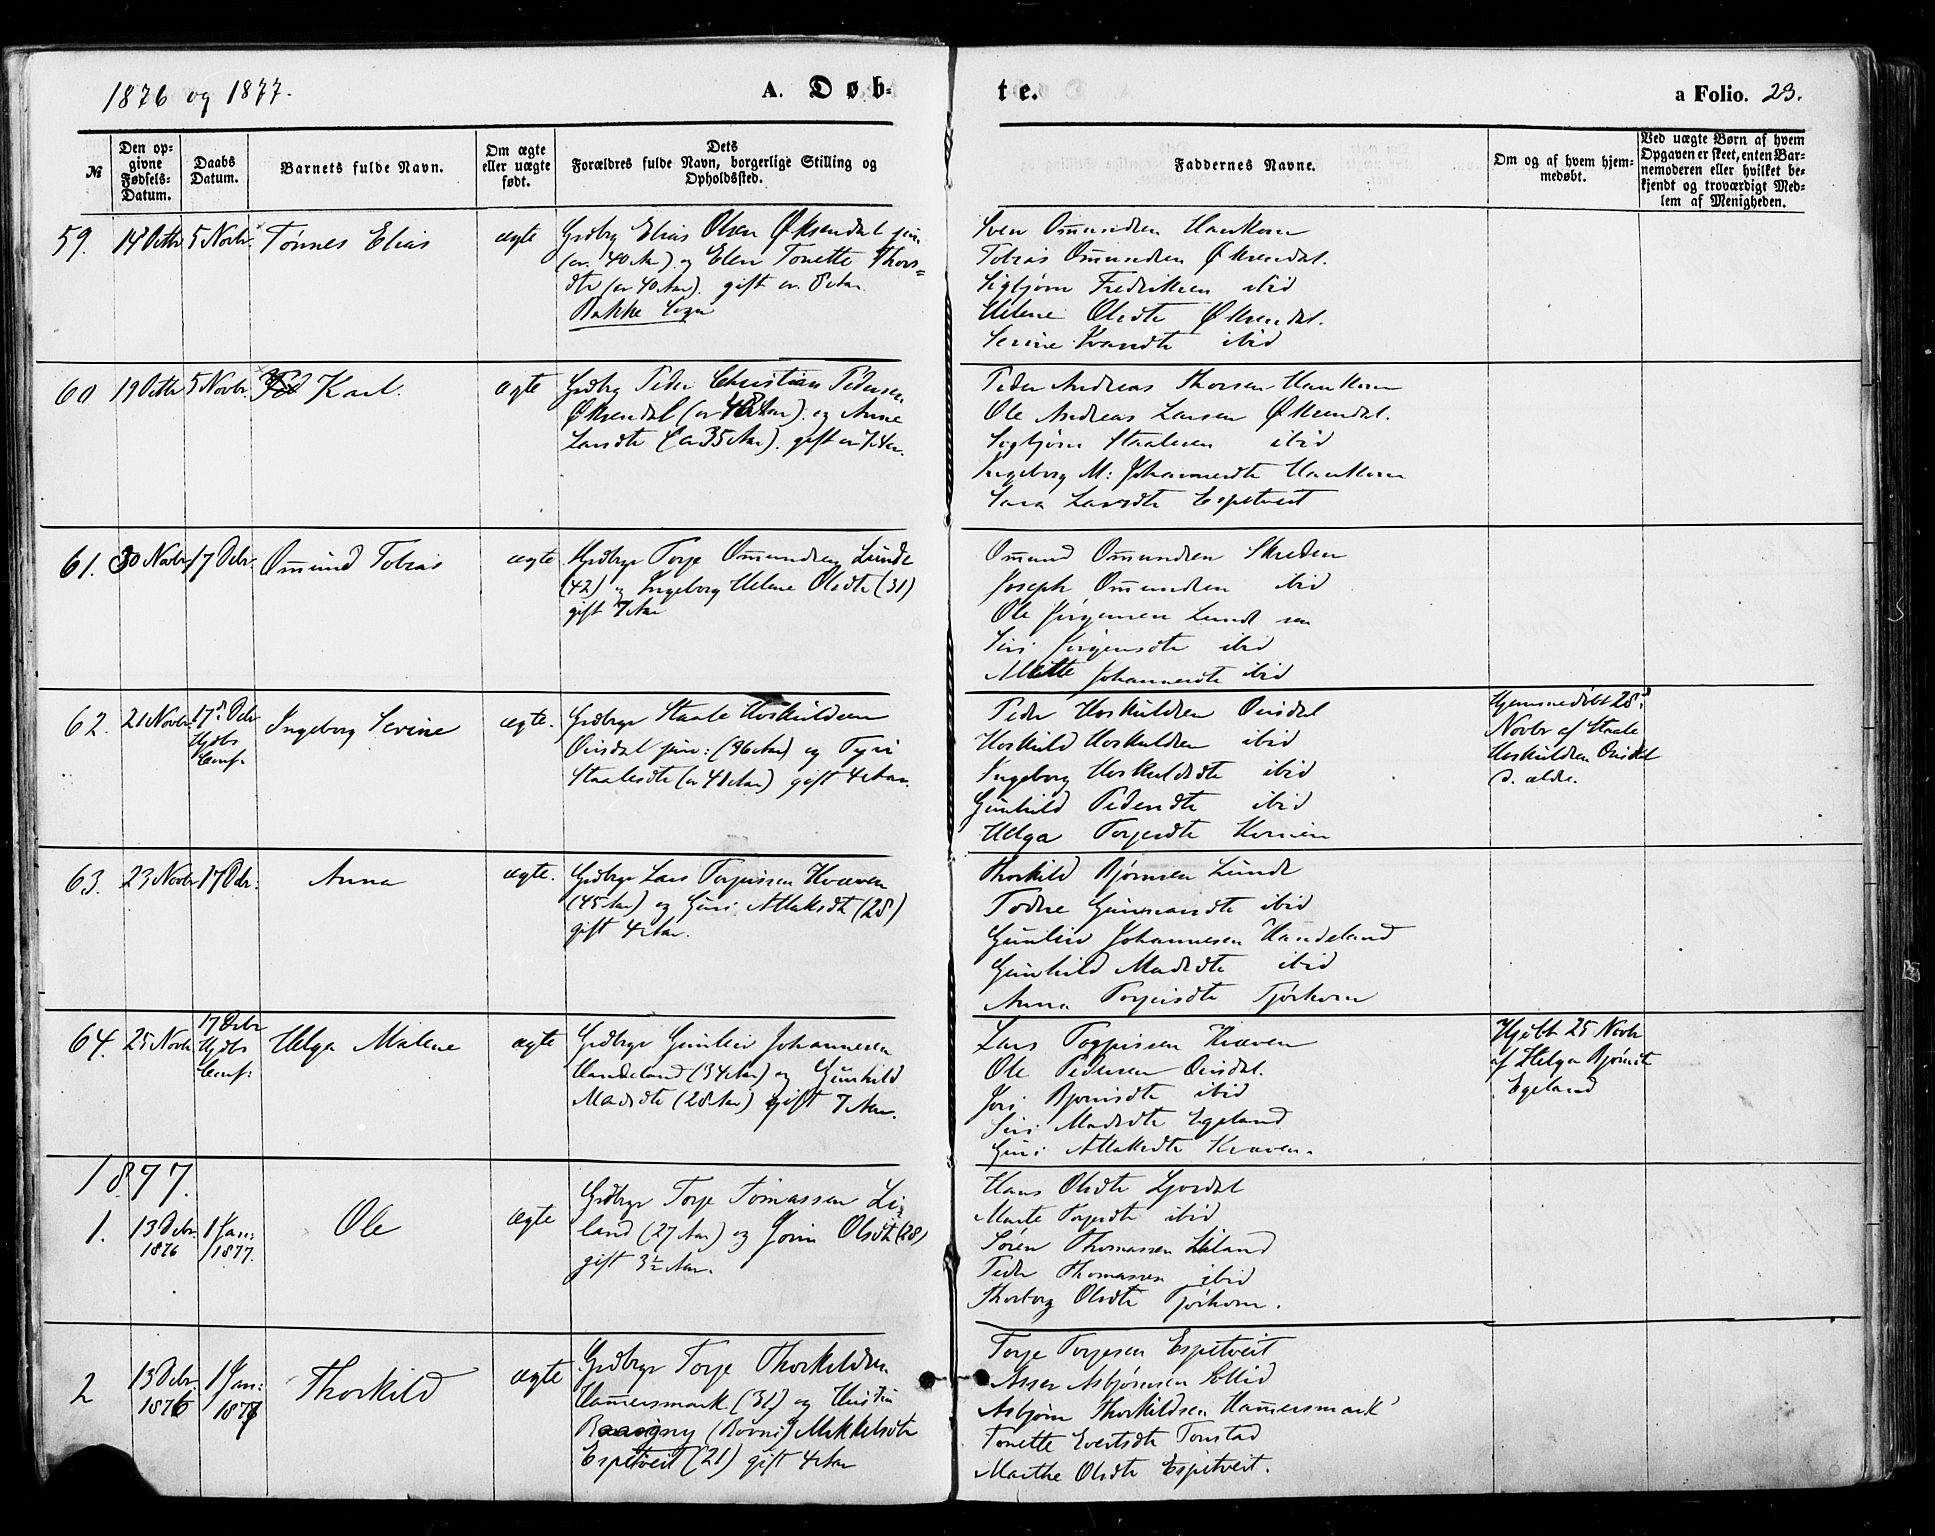 1876 og 1877.
A. Døb-
te.
a Folio. 23.
№
Den op-
givne
Fødsels-
Datum.
Daabs
Datum.
Barnets fulde Navn.
Om ægte
eller uægte
født.
Dets
Forældres fulde Navn, borgerlige Stilling og
Opholdssted.
Faddernes Navne.
Om og af hvem hjem-
medøbt.
Ved uægte Børn af hvem
Opgaven er skeet, enten Bar-
nemoderen eller hvilket be-
kjendt og troværdigt Med-
lem af Menigheden.
59.
14 Octbr
5 Novbr.
Tønnes Elias
ægte
Grdbrg Elias Olsen Øksendal jun
(er 40 Aar) og Elen Tonette Thors=
dtr (er 40 Aar). gift er 8 Aar.
Bakke Sogn
Sven Omundsen Haukom
Tobias Omundsen Øksendal.
Sigbjørn Fredriksen ibid
Helene Olsdtr Øksendal.
Serine Ivarsdtr ibid
60
19 Octbr
5 Novbr.
Karl.
ægte
Grdbrg Peder Christian Pedersen
Øksendal (er 48 Aar). og Anne
Larsdtr (er 35 Aar). gift er 7 Aar.
Peder Andreas Thorsen Haukom
Ole Andreas Larsen Øksendal.
Sigbjørn Staalesen ibid
Ingeborg M: Johannesdtr Haukom
Sara Larsdtr Espetveit
61.
30 Novbr
17 Debr.
Omund Tobias
ægte
Grdbrgr Torje Omundsen Lunde
(42) og Ingeborg Helene Olsdtr (31)
gift 7 Aar
Omund Omundsen Skreden
Joseph Omundsen ibid
Ole Jørgensen Lunde sen
Siri Jørgensdtr ibid
Mette Johannesdtr ibid
62.
21 Novbr
17d Debr
Hjdbs
Conf:
Ingeborg Serine
ægte.
Grdbrgr Staale Hoskuldsen
Ousdal jun: (36 Aar) og Tyri
Staalesdtr (er 41 Aar) gift 4 Aar.
Peder Hoskuldsen Ousdal
Hoskuld Hoskuldsen ibid
Ingeborg Hoskuldsdtr ibid
Gunhild Pedersdtr ibid
Helga Torjesdtr
Hjemmedøbt 28d
Novbr af Staale
Hoskuldsen Ousdal
d. ældre.
63.
23 Novbr
17 Debr:
Anna
ægte.
Grdbrgr Lars Torjussen Kvæven
(45 Aar) og Guri Atlaksdtr (28)
gift 4 Aar.
Thorkild Bjørnsen Lunde
Todne Gunnarsdtr ibid
Gunleiv Johannesen Handeland
Gunhild Madsdtr ibid
Anna Torjusdtr Tjørhom
64.
25 Novbr
17 Debr
Hjdbs
Conf:
Helga Malene
ægte
Grdbrgr Gunleiv Johannesen
Handeland (34 Aar) og Gunhild
Madsdtr (28 Aar) gift 7 Aar.
Lars Torjussen Kvæven
Ole Pedersen Ousdal.
Jori Bjørnsdtr ibid
Siri Madsdtr Egeland
Guri Atlaksdtr Kvæven.
Hjdbt 25 Novbr
af Helga Bjørnsdtr
Egeland
1877.
1.
13 Debr.
1876
1 Jan:
1877.
Ole
ægte
Grdbrgr Torje Tomassen Li-
land (27 Aar) og Jorin Olsdtr (28)
gift 3½ Aar.
Hans Olsdtr Ljosdal
Marte Torjesdtr ibid
Søren Thomassen Liland
Peder Thomassen ibid
Thorborg Olsdtr Tjørhom.
2
13 Debr.
1876
1 Jan:
1877
Thorkild
ægte
Grdbrgr Torje Thorkildsen
Hamersmark (31) og Hustru
Raagny (Rovni) Mikkelsdtr
Espetveit (21) gift 4 Aar
Torje Torjesen Espetveit
Asser Asbjørnsen Eftid
Asbjørn Thorkildsen Hamersmark
Tonette Evertsdtr Tonstad
Marthe Olsdtr Espetveit.